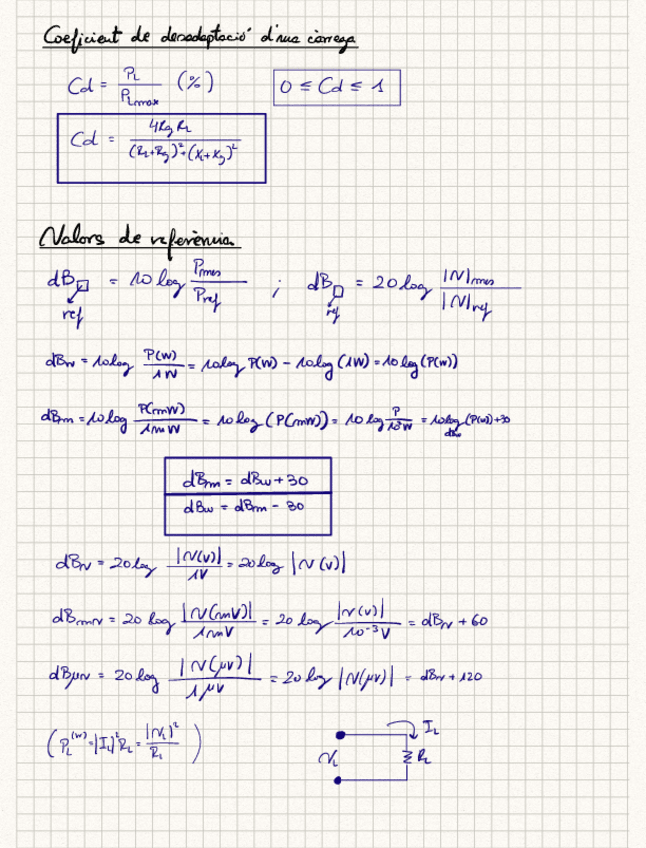 Coeficient de desadaptació d'una càrrega
Cd = P_L / P_Lmax (%)    0 ≤ Cd ≤ 1
Cd = 4RgRL / ((RL+Rg)²+(XL+Xg)²)
Valors de referència
dB□ = 10 log Pmes / Pref ; dB□ = 20 log |V|mes / |V|ref
ref    ref
dBw = 10 log P(W) / 1W = 10 log P(W) - 10 log (1W) = 10 log (P(W))
dBm = 10 log P(mW) / 1mW = 10 log (P(mW)) = 10 log P / 10⁻³W = 10 log (P(W)) + 30
dBw
dBm = dBw + 30
dBw = dBm - 30
dBv = 20 log |V(V)| / 1V = 20 log |V(V)|
dBmv = 20 log |V(mV)| / 1mV = 20 log |V(V)| / 10⁻³V = dBv + 60
dBμv = 20 log |V(μV)| / 1μV = 20 log |V(μV)| = dBv + 120
(P_L^(W) = |I_L|² R_L = |V_L|² / R_L)
I_L
V_L    R_L